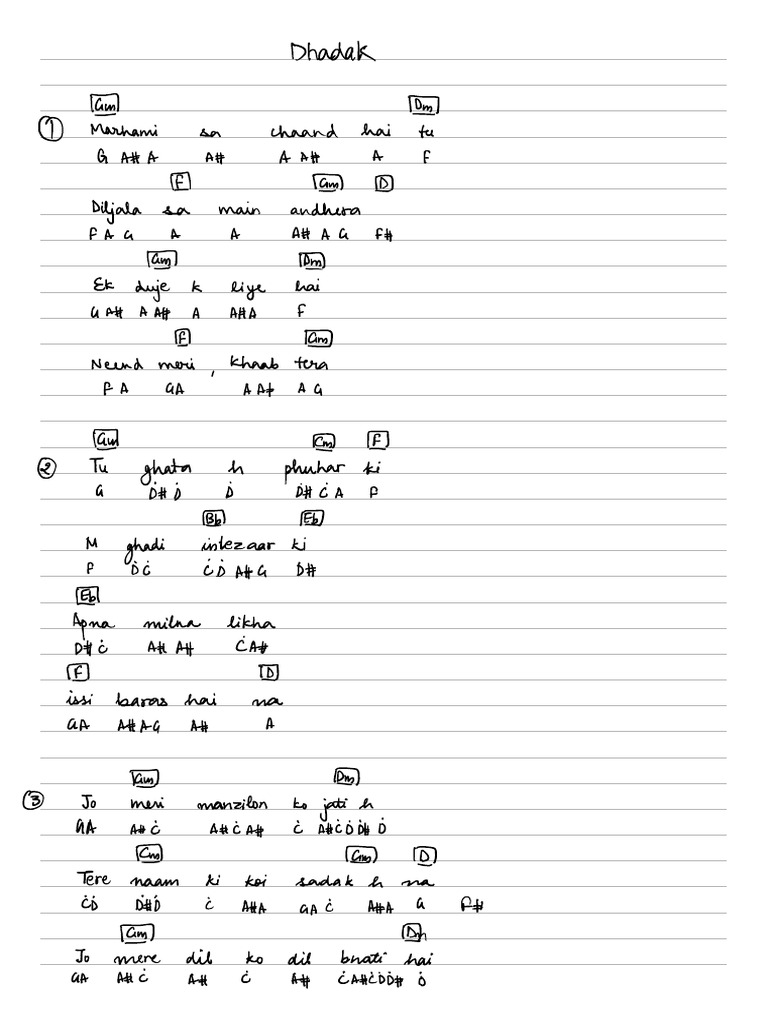 Dhadak
Gm Dm
1 Marhami sa chaand hai tu
G A# A A# A A# A F
F Gm D
Diljala sa main andhera
F A G A A A# A G F#
Gm Dm
Ek duje k liye hai
G A# A A# A A# A F
F Gm
Neend meri, khaab tera
F A G A A A# A G
Gm Cm F
2 Tu ghata h phuhar ki
G Ḋ# Ḋ Ḋ Ḋ# Ċ A F
Bb Eb
M ghadi intezaar ki
F Ḋ Ċ Ċ Ḋ A# G D#
Eb
Apna milna likha
D# Ċ A# A# Ċ A#
F D
issi baras hai na
G A A# A G A# A
Gm Dm
3 Jo meri manzilon ko jati h
G A A# Ċ A# Ċ A# Ċ A# Ċ Ḋ Ḋ# Ḋ
Cm Gm D
Tere naam ki koi sadak h na
Ċ Ḋ Ḋ# Ḋ Ċ A# A G A Ċ A# A G F#
Gm Dm
Jo mere dil ko dil bnati hai
G A A# Ċ A# Ċ A# Ċ A# Ċ Ḋ Ḋ# Ḋ